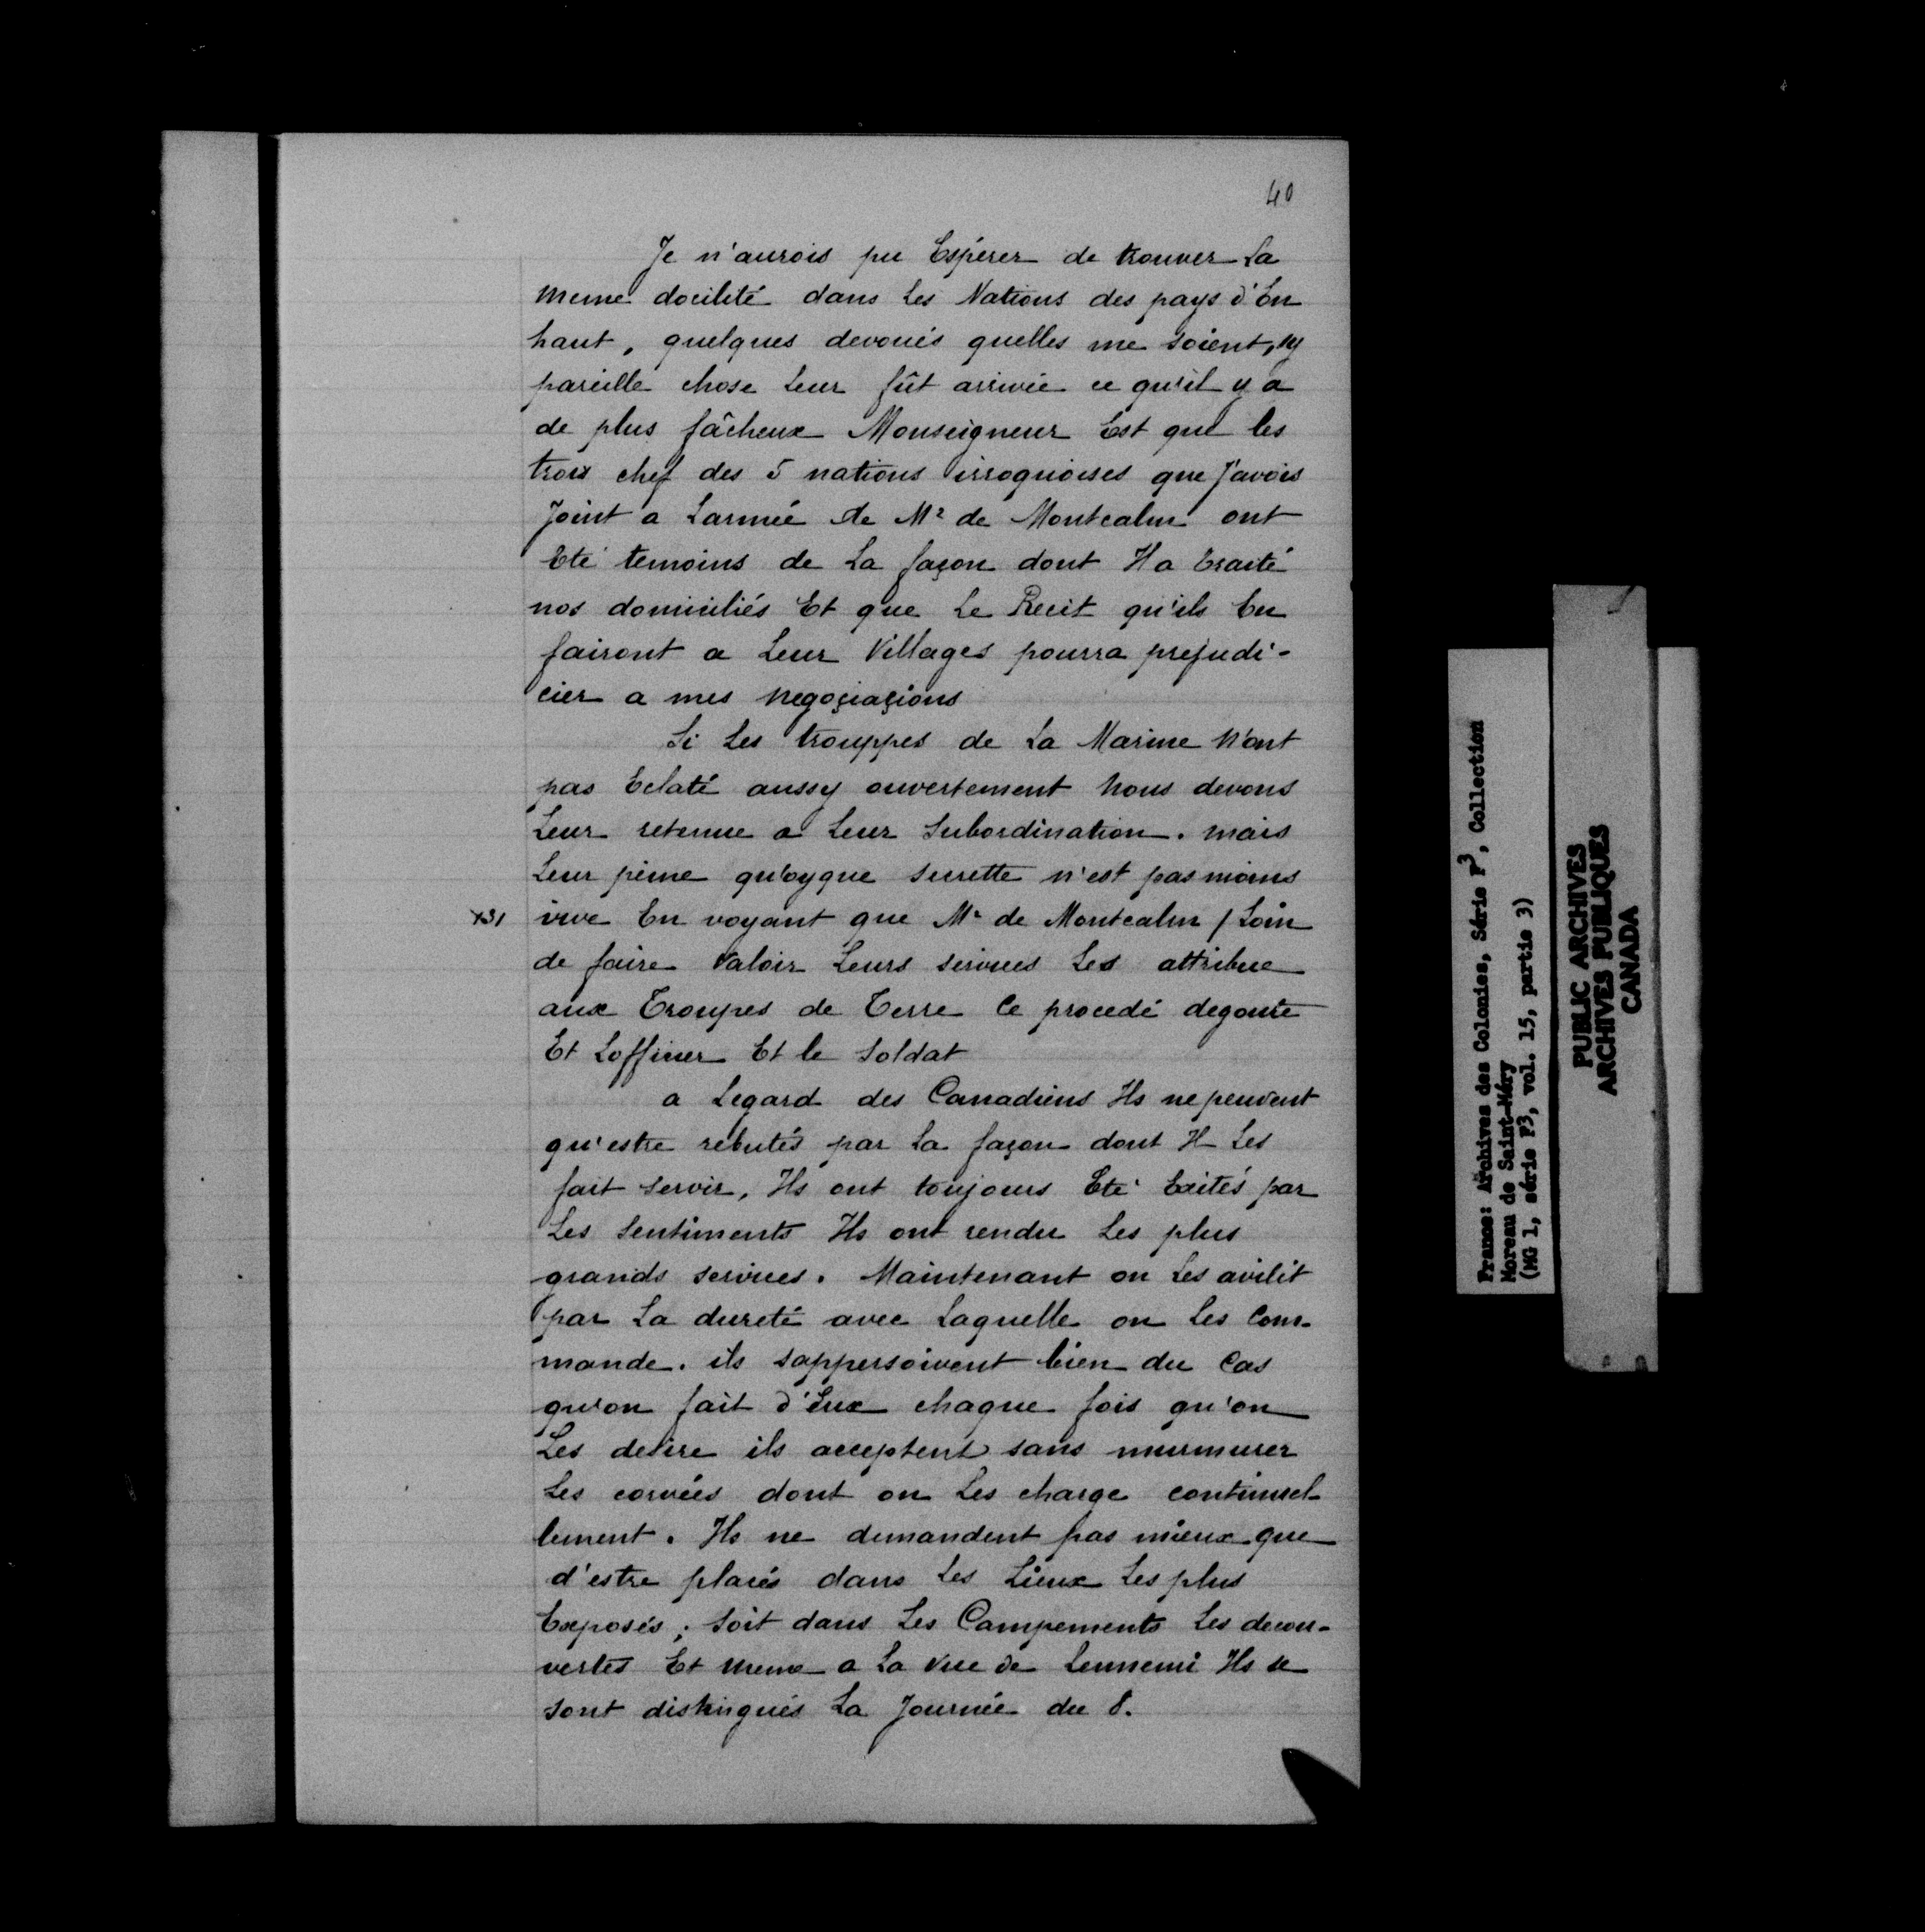 40
Je n'aurois pu Espérer de trouver La
meme docilité dans Les Nations des pays d'En
haut, quelques devoués quelles me soient, sy
pareille chose Leur fût arrivée ce qu'il y a
de plus fâcheux Monseigneur Est que les
trois chef des 5 nations irroquoises que J'avois
Joint a Larmée de Mr de Montcalm ont
Eté temoins de La façon dont Il a traité
nos domiciliés Et que Le Recit qu'ils En
fairont a Leur Villages pourra prejudi-
cier a mes negoçiaçions
Si Les trouppes de La Marine n'ont
pas Eclaté aussy ouvertement nous devons
Leur retenue a Leur Subordination. mais
Leur peine qu'oyque secrette n'est pas moins
vive En voyant que Mr de Montcalm / Loin
de faire Valoir Leurs services Les attribue
aux Troupes de Terre Ce procedé degoute
Et Lofficier Et le Soldat
a Legard des Canadiens Ils ne peuvent
qu'estre rebutés par La façon dont Il Les
fait servir, Ils ont toujours Eté Exités par
Les Sentiments Ils ont rendu Les plus
grands services. Maintenant on Les avilit
par La dureté avec Laquelle on Les Com-
mande. ils sappersoivent bien du Cas
qu'on fait d'Eux chaque fois qu'on
Les desire ils acceptent sans murmurer
Les corvées dont on Les charge continuel-
lement. Ils ne demandent pas mieux que
d'estre placés dans Les Lieux Les plus
Exposés; Soit dans Les Campements Les decou-
vertes Et meme a La vue de Lennemi Ils se
sont distingués La Journée du 8.
France: Archives des Colonies, Série F3, Collection
Moreau de Saint-Méry
(MG 1, série F3, vol. 15, partie 3)
PUBLIC ARCHIVES
ARCHIVES PUBLIQUES
CANADA